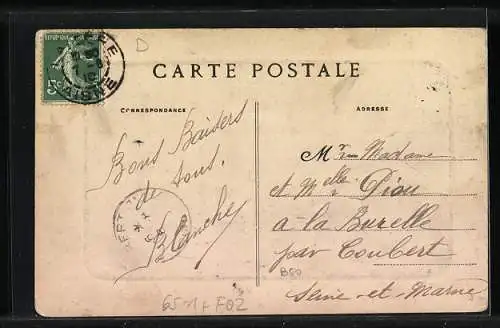 D
CARTE POSTALE
CORRESPONDANCE
ADRESSE
5c
AISNE
Bons Baisers
de
tous.
Blanche
Mr Madame
et Melle Piou
à la Burelle
par Coubert
Seine-et-Marne
B80